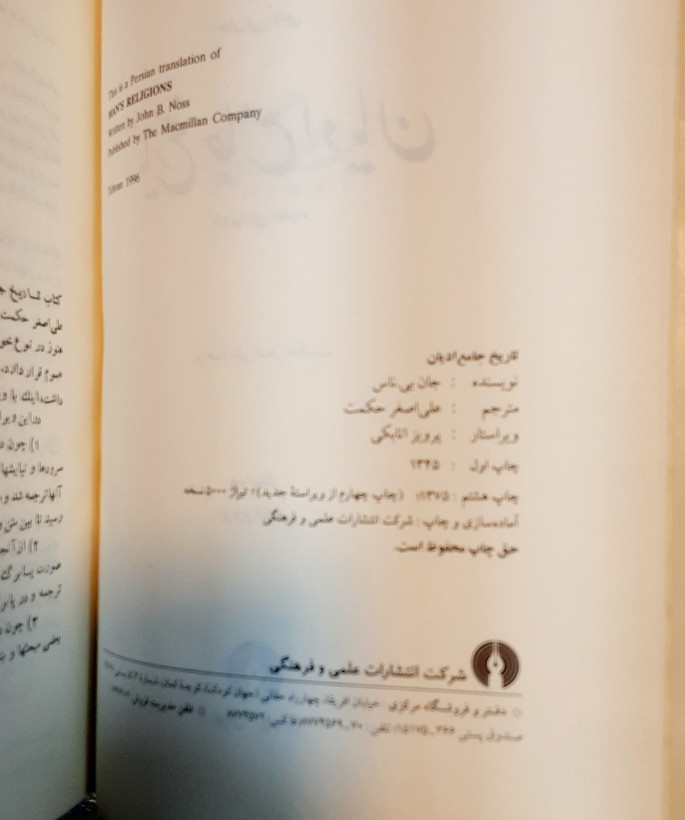 This is a Persian translation of
MAN'S RELIGIONS
Written by John B. Noss
Published by The Macmillan Company
Tehran 1996
تاریخ جامع ادیان
نویسنده : جان بی. ناس
مترجم : علی‌اصغر حکمت
ویراستار : پرویز اتابکی
چاپ اول : ۱۳۴۵
چاپ هشتم : ۱۳۷۵؛ (چاپ چهارم از ویراستهٔ جدید)؛ تیراژ ۵۰۰۰ نسخه
آماده‌سازی و چاپ : شرکت انتشارات علمی و فرهنگی
حق چاپ محفوظ است.
شرکت انتشارات علمی و فرهنگی
دفتر و فروشگاه مرکزی : خیابان افریقا، چهارراه حقانی (جهان کودک)، کوچهٔ کمان، شمارهٔ ۴
صندوق پستی تلفن : فاکس: تلفن مدیریت فروش:
کتاب تاریخ
علی‌اصغر حکمت
هنوز در نوع خو
عموم قرار دارد،
داشته، اینک با و
در این ویرا
۱) چون د
سرودها و نیایشها
آنها ترجمه شد و
رسید تا بین متن و
۲) از آنج
صورت پسابرگ
ترجمه و در پانو
۳) چون د
بعضی مبحثها و